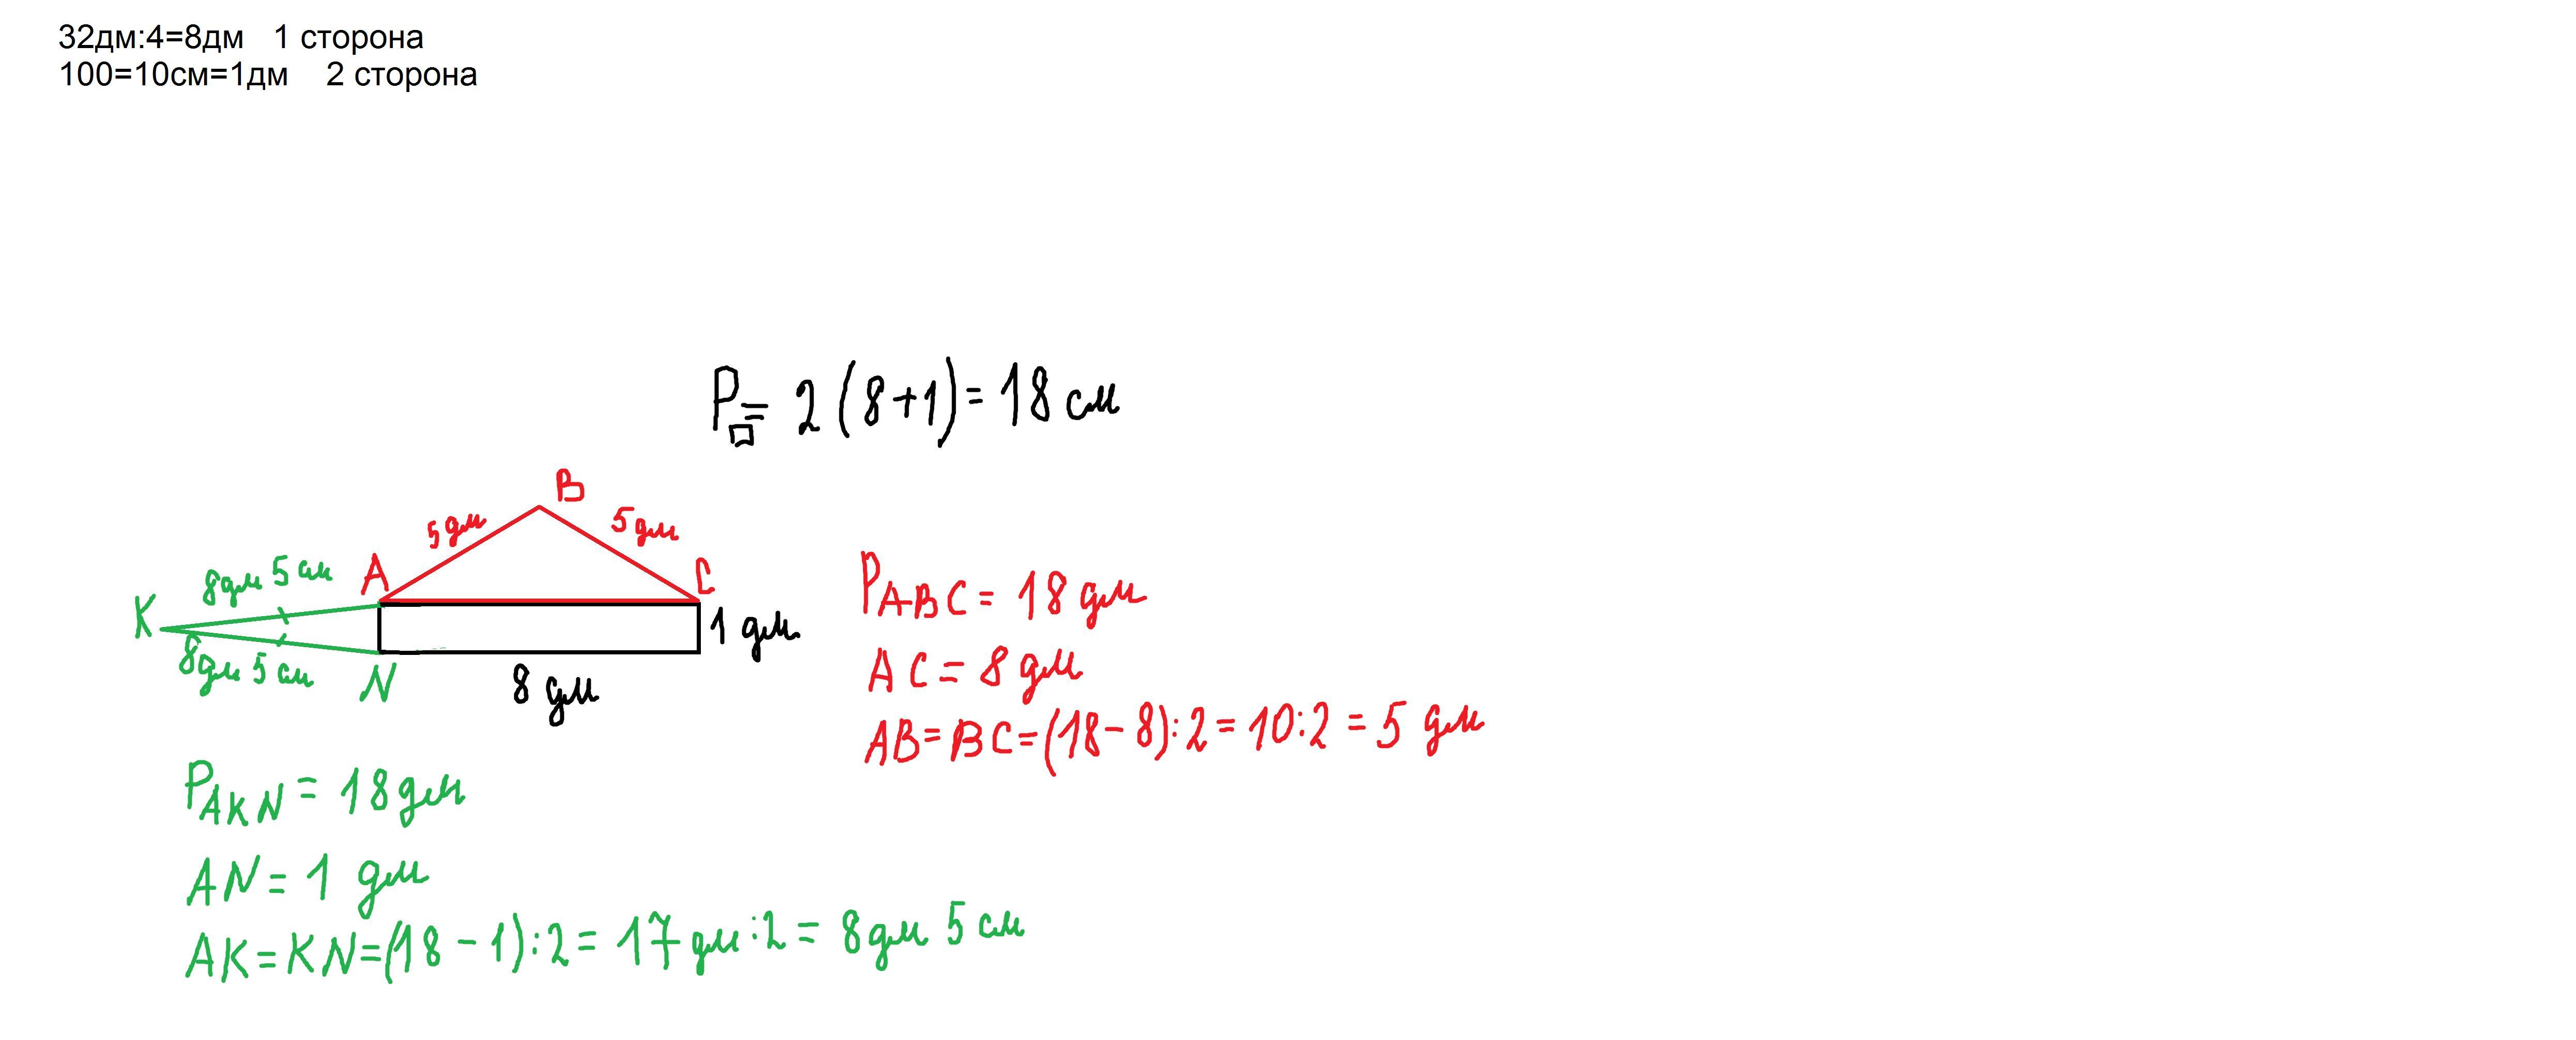 32дм:4=8дм 1 сторона
100=10см=1дм 2 сторона
P□= 2(8+1)=18 см
B
5 дм
5 дм
A
C
8дм 5 см
K
8дм 5 см
N
1 дм
8 дм
PABC = 18 дм
AC = 8 дм
AB=BC=(18-8):2=10:2=5 дм
PAKN = 18 дм
AN = 1 дм
AK=KN=(18-1):2=17 дм:2=8дм 5 см